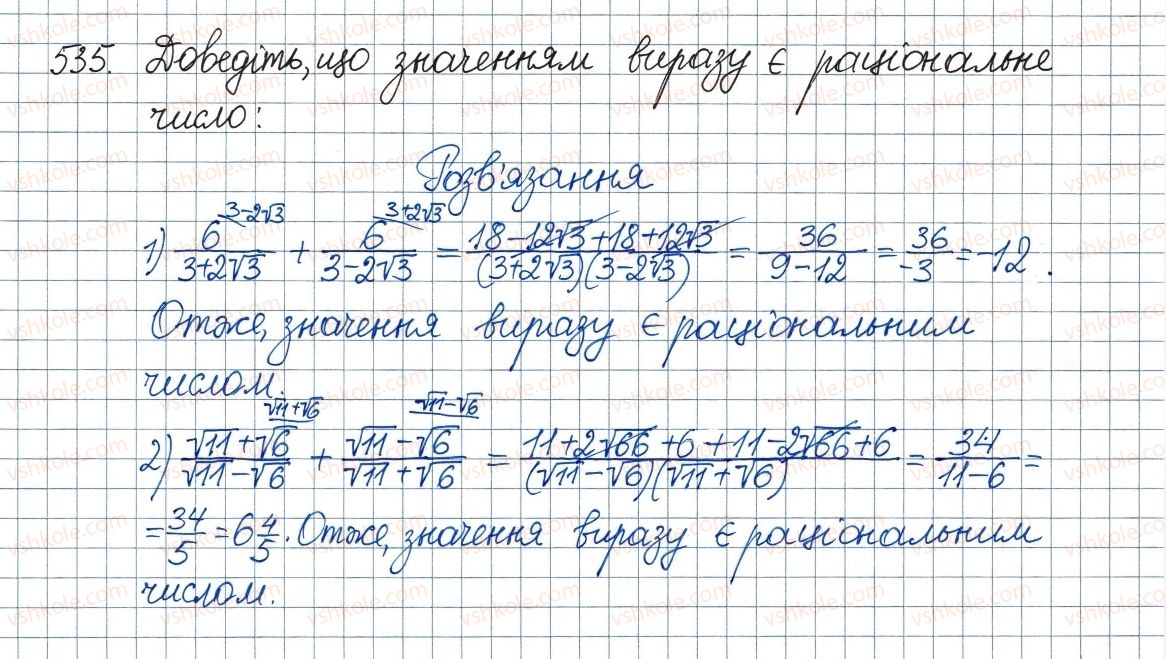 535. Доведіть, що значенням виразу є раціональне
число:
Розв'язання
1) 6^{3-2√3}/(3+2√3) + 6^{3+2√3}/(3-2√3) = (18-12√3+18+12√3)/((3+2√3)(3-2√3)) = 36/(9-12) = 36/-3 = -12.
Отже, значення виразу є раціональним
числом.
2) (√11+√6)^{√11+√6}/(√11-√6) + (√11-√6)^{√11-√6}/(√11+√6) = (11+2√66+6+11-2√66+6)/((√11-√6)(√11+√6)) = 34/(11-6) =
= 34/5 = 6 4/5. Отже, значення виразу є раціональним
числом.